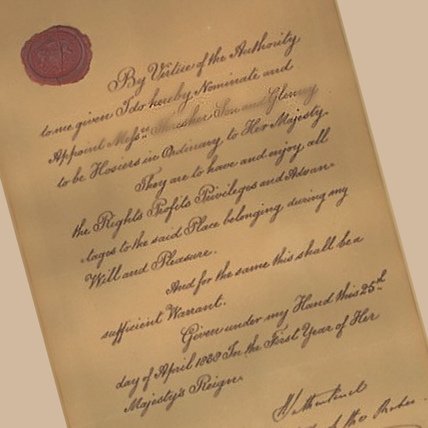 By Virtue of the Authority
to me given I do hereby Nominate and
Appoint Mess.rs Thresher Son and Glenny
to be Hosiers in Ordinary to Her Majesty.
They are to have and enjoy all
the Rights Profits Privileges and Advan-
tages to the said Place belonging during my
Will and Pleasure.
And for the same this shall be a
sufficient Warrant.
Given under my Hand this 25th
day of April 1838 In the First Year of Her
Majesty's Reign.